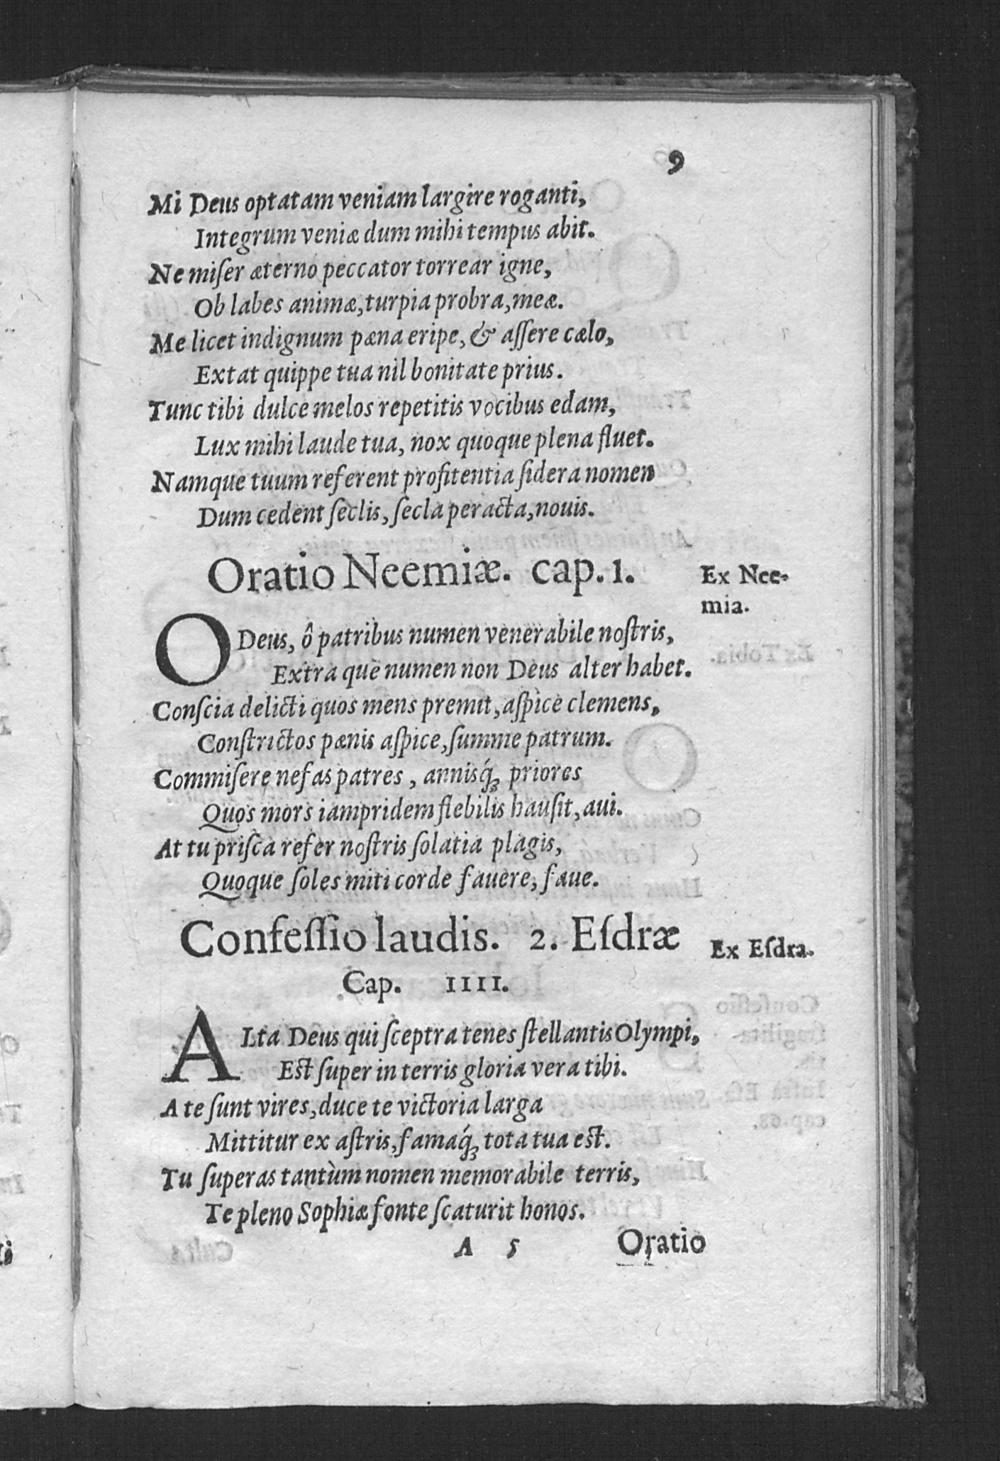 9
Mi Deus optatam veniam largire roganti,
Integrum veniæ dum mihi tempus abit.
Ne miſer æterno peccator torrear igne,
Ob labes animæ, turpia probra, meæ.
Me licet indignum pæna eripe, & aſſere cælo,
Extat quippe tua nil bonitate prius.
Tunc tibi dulce melos repetitis vocibus edam,
Lux mihi laude tua, nox quoque plena fluet.
Namque tuum referent profitentia ſidera nomen
Dum cedent ſeclis, ſecla peracta, nouis.
Oratio Neemiæ. cap. 1.
Ex Nee-
mia.
O Deus, ô patribus numen venerabile noſtris,
Extra quē numen non Deus alter habet.
Conſcia delicti quos mens premit, aſpice clemens,
Conſtrictos pænis aſpice, ſumme patrum.
Commiſere nefas patres, annisq́; priores
Quos mors iampridem flebilis hauſit, aui.
At tu priſca refer noſtris ſolatia plagis,
Quoque ſoles miti corde fauere, faue.
Confeſſio laudis. 2. Eſdræ
Ex Eſdra.
Cap. IIII.
ALta Deus qui ſceptra tenes ſtellantis Olympi,
Eſt ſuper in terris gloria vera tibi.
A te ſunt vires, duce te victoria larga
Mittitur ex aſtris, famaq́; tota tua eſt.
Tu ſuperas tantùm nomen memorabile terris,
Te pleno Sophiæ fonte ſcaturit honos.
A 5
Oratio